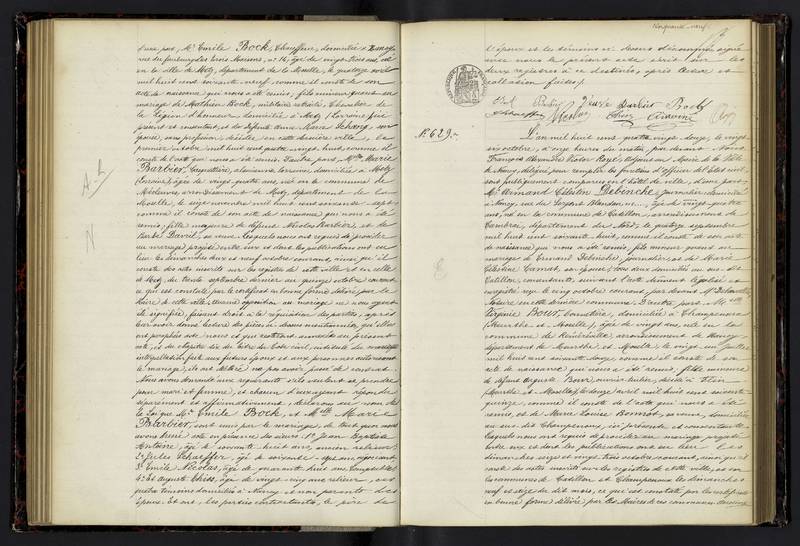 d'une part, Mr Emile Bock, Chauffeur, domicilié à Nancy
rue du faubourg des trois Maisons, n° 14, âgé de vingt-trois ans, né
en la ville de Metz, département de la Moselle, le quatorze avril
mil huit cent soixante neuf, comme il conste de son
acte de naissance qui nous a été remis, fils mineur quant au
mariage de Mathieu Bock, militaire retraité, Chevalier de
la Légion d'honneur domicilié à Metz (Lorraine) ici
présent et consentant, et de défunte Anne Marie Schang, son
épouse, sans profession, décédée en cette dernière ville, le
premier octobre mil huit cent quatre vingt huit, comme il
conste de l'acte qui nous a été remis. D'autre part, Melle Marie
Barbier, domiciliée à Metz
(Lorraine), âgée de vingt quatre ans, née en la commune de
arrondissement de Metz, département de la
Moselle, le seize novembre mil huit cent soixante sept
comme il conste de son acte de naissance qui nous a été
remis, fille majeure de défunt Nicolas Barbier, et de
Barbe sa veuve. Lesquels nous ont requis de procéder
au mariage projeté entre eux et dont les publications ont eu
lieu les dimanches deux et neuf octobre courant, ainsi qu'il
conste des actes inscrits sur les registres de cette ville et en celle
de Metz, du trente septembre dernier au quinze octobre courant,
ce qui est constaté par le certificat en bonne forme délivré par le
Maire de cette ville; aucune opposition au mariage ne nous ayant
été signifiée, faisant droit à la réquisition des parties, après
leur avoir donné lecture des pièces ci-dessus mentionnées, qu'elles
ont paraphées avec nous et qui resteront annexées au présent
acte, et du chapitre six du titre du Code civil, intitulé du mariage
interpellation faite aux futurs époux et aux personnes autorisant
le mariage, ils ont déclaré ne pas avoir passé de contrat.
Nous avons demandé aux requérants s'ils veulent se prendre
pour mari et femme, et chacun d'eux ayant répondu
séparément et affirmativement, déclarons au nom de
la Loi que Mr Emile Bock, et Melle Marie
Barbier, sont unis par le mariage, de tout quoi nous
avons dressé acte en présence des sieurs 1° Jean Baptiste
Antoine, âgé de soixante huit ans, ancien relieur,
2° Jules Schaeffer, âgé de soixante-sept ans, négociant
3° Emile Nicolas, âgé de quarante huit ans Comptable
4° Et Auguste Chiss, âgé de vingt-cinq ans relieur, ces
quatre témoins domiciliés à Nancy et non parents des
époux. Et ont, les parties contractantes, le père de
A. L
N
l'époux et les témoins ci-dessus dénommés signé
avec nous le présent acte écrit sur les
deux registres à ce destinés, après lecture et
collation faites.
Barbier Bock
Schaeffer Nicolas Chiss Antoine
N° 629.
L'an mil huit cent quatre vingt douze, le vingt
six octobre, à onze heures du matin, par devant Nous
François Alexandre Victor Royé, adjoint au Maire de la Ville
de Nancy, délégué pour remplir les fonctions d'officier de l'état civil,
sont publiquement comparus en l'hôtel de ville, d'une part,
Mr Armand Célestin Debieche, journalier, domicilié
à Nancy, rue du Sergent Blandan, n° , âgé de vingt-quatre
ans, né en la commune de Catillon, arrondissement de
Cambrai, département du Nord, le quatre septembre
mil huit cent soixante-huit, comme il conste de son acte
de naissance qui nous a été remis, fils mineur quant au
mariage de Armand Debieche, journalier et de Marie
Célestine Carnat, son épouse, tous deux domiciliés au sus-dit
Catillon, consentants, suivant l'acte dûment légalisé et
enregistré reçu le cinq octobre courant, par devant Me
notaire en cette dernière commune. D'autre part, Melle
Virginie Bour, domiciliée à Champenoux
(Meurthe et Moselle), âgée de vingt ans, née en la
commune de Réméréville, arrondissement de Nancy,
département de Meurthe et Moselle, le vingt un juillet
mil huit cent soixante douze, comme il conste de son
acte de naissance qui nous a été remis, fille mineure
de défunt Auguste Bour, ouvrier tuilier, décédé à Flin
(Meurthe et Moselle), le douze avril mil huit cent soixante
quinze, comme il conste de l'acte qui nous a été
remis, et de Marie Louise Bonnot, sa veuve, domiciliée
au sus dit Champenoux, ici présente et consentante.
Lesquels nous ont requis de procéder au mariage projeté
entre eux et dont les publications ont eu lieu les
dimanches seize et vingt trois octobre courant, ainsi qu'il
conste des actes inscrits sur les registres de cette ville, et en
les communes de Catillon et Champenoux les dimanches
neuf et seize du dit mois, ce qui est constaté par les certificats
en bonne forme délivrés par les Maires de ces communes